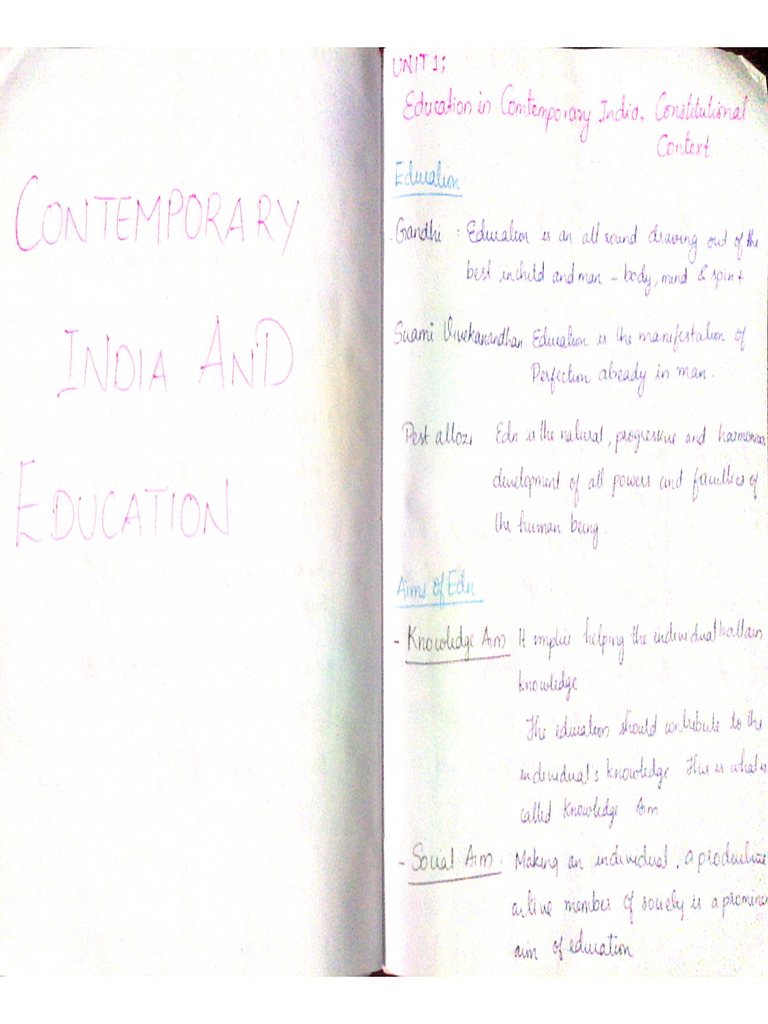 CONTEMPORARY
INDIA AND
EDUCATION
UNIT 1:
Education in Contemporary India, Constitutional
Context
Education
Gandhi : Education is an all round drawing out of the
best in child and man - body, mind & spirit
Swami Vivekanandhan Education is the manifestation of
Perfection already in man.
Pestallozi Edn is the natural, progressive and harmonious
development of all powers and faculties of
the human being.
Aims of Edn
- Knowledge Aim It implies helping the individual to attain
knowledge
The education should contribute to the
individual's knowledge This is what is
called Knowledge Aim
- Social Aim. Making an individual, a productive
active member of society is a prominen
aim of education